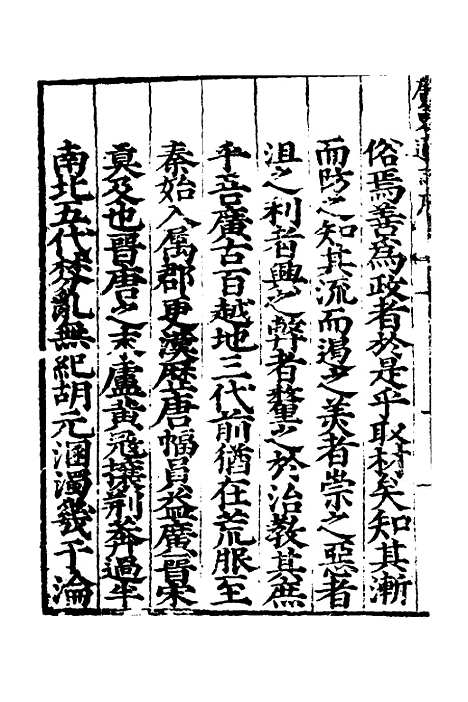 俗焉善爲政者於是乎取材矣知其漸
而防之知其流而遏之美者崇之惡者
沮之利者興之弊者釐之於治教其庶
乎吾廣古百越地三代前猶在荒服至
秦始入屬郡更漢歷唐幅員益廣晉宋
莫及也晉唐之末盧黃飛攘荆莽過半
南北五代棼亂無紀胡元溷濁幾于淪